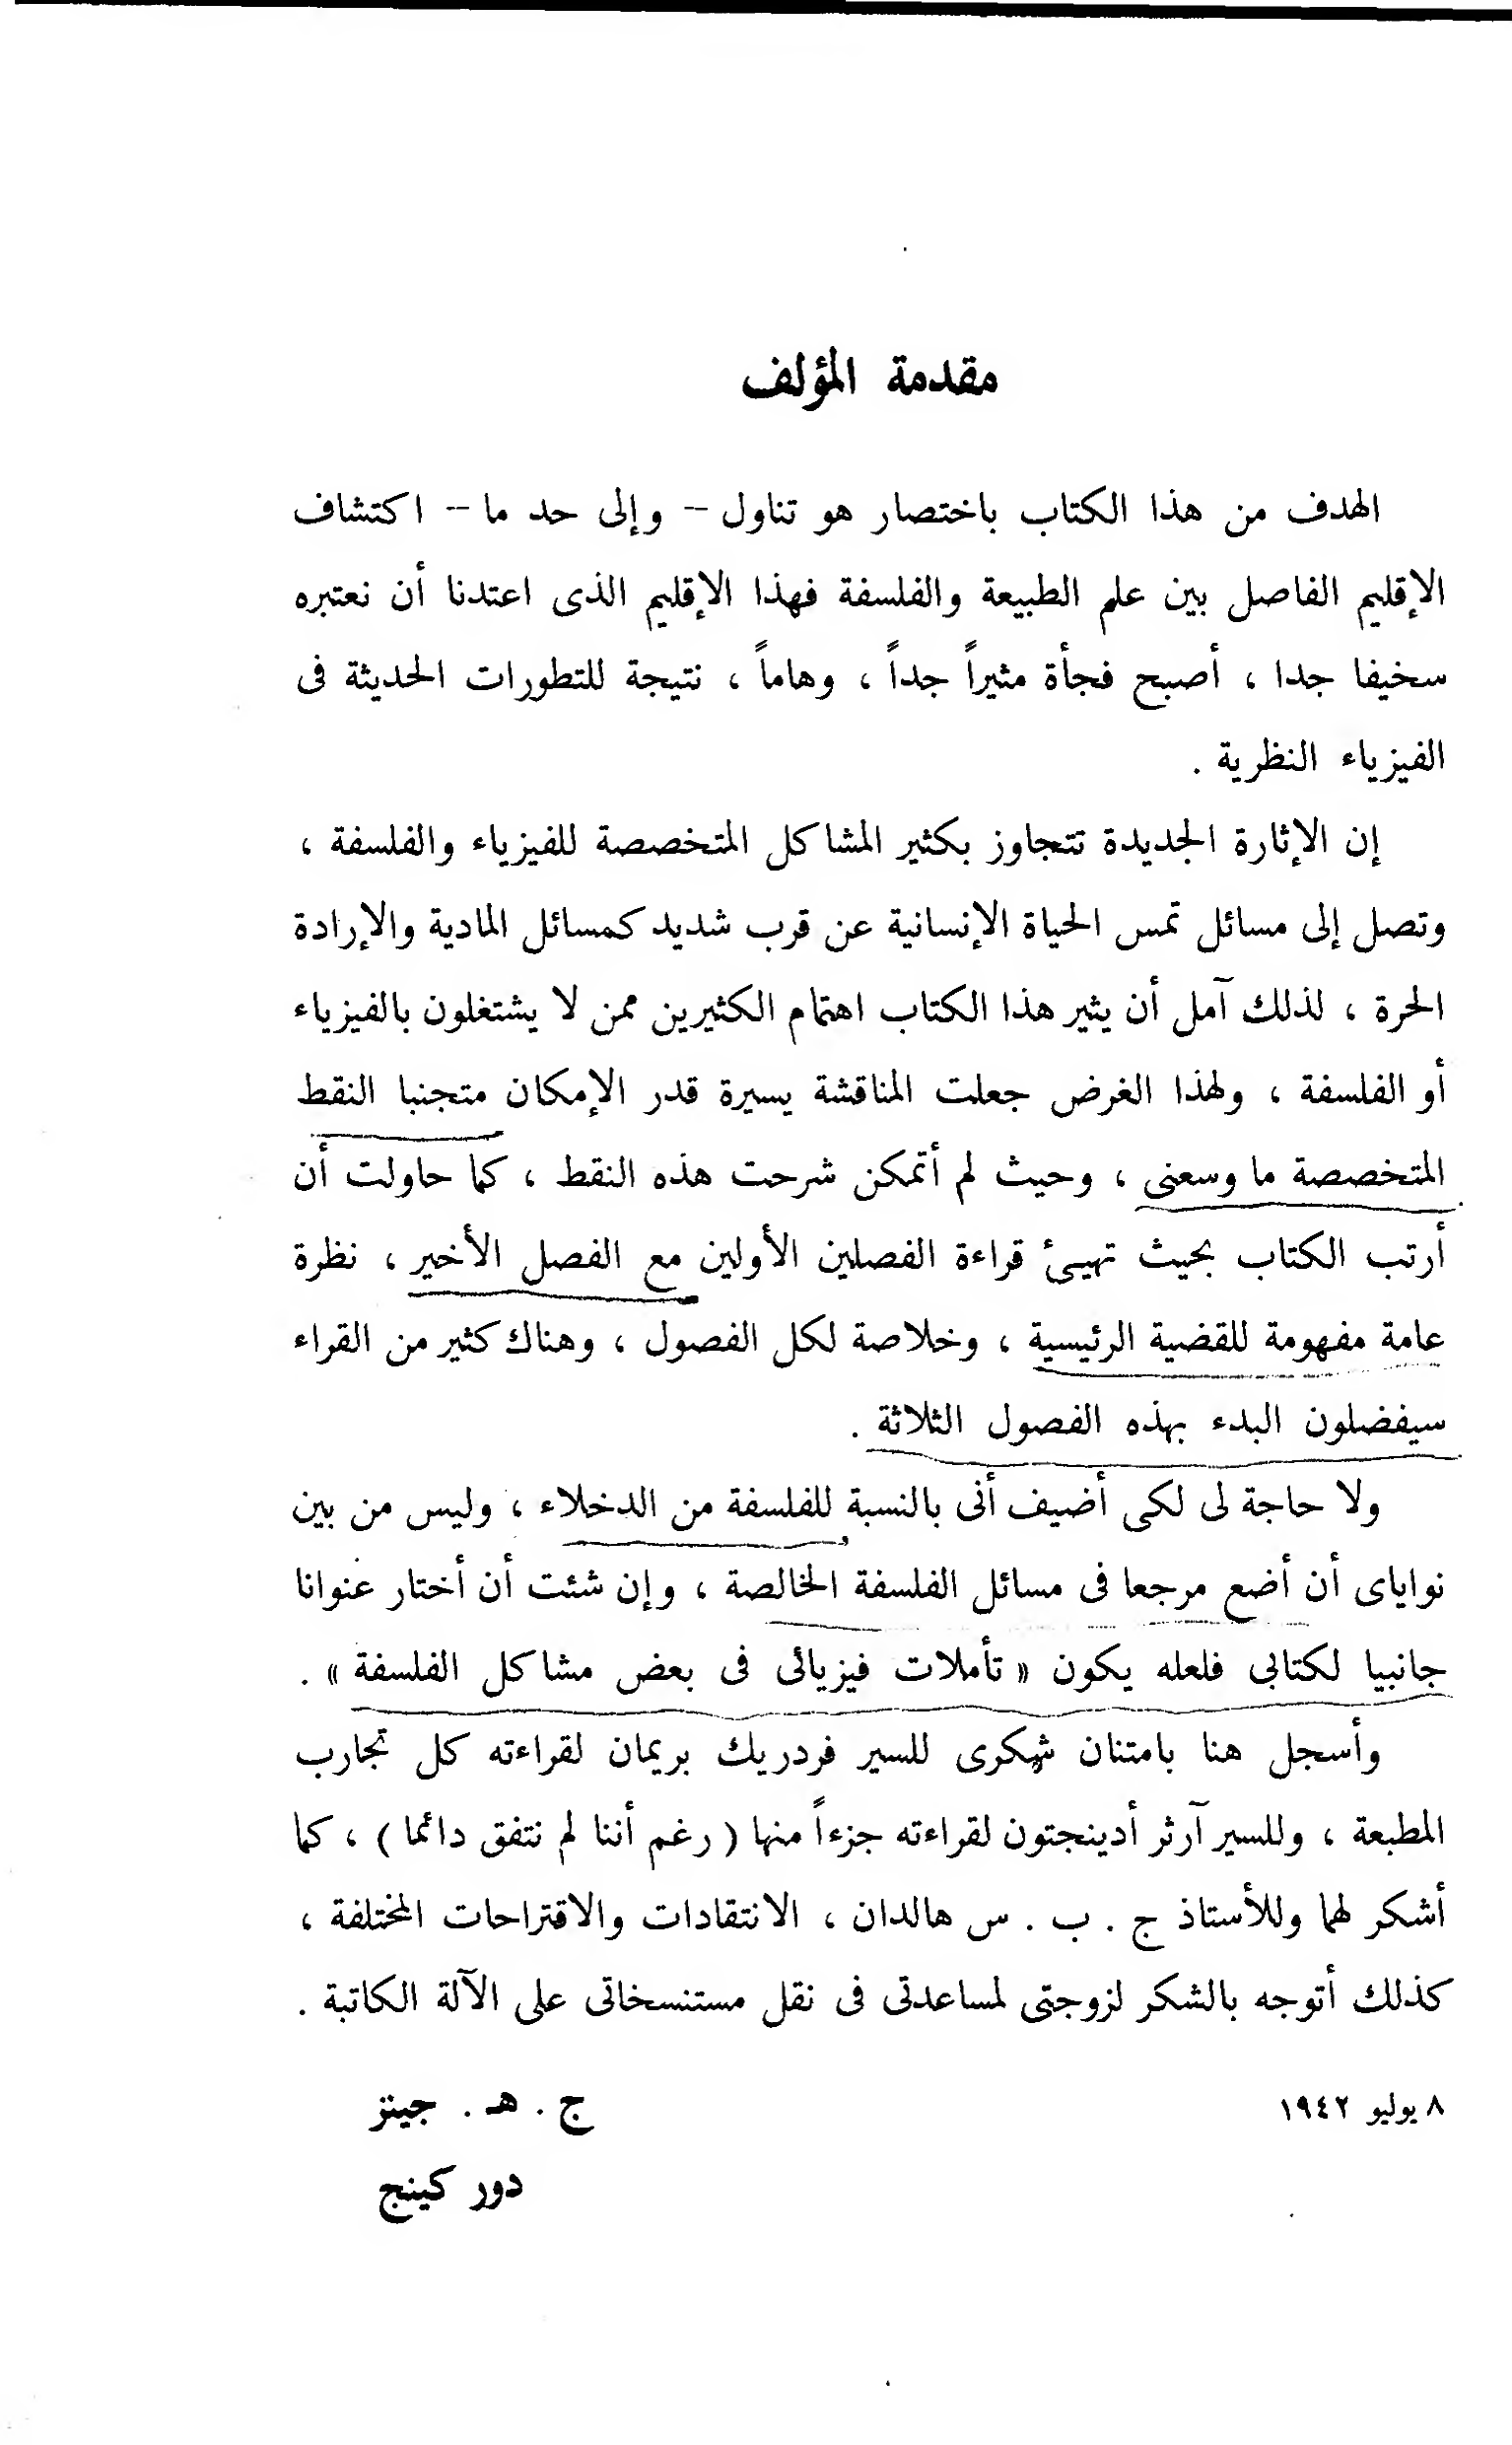 مقدمة المؤلف
الهدف من هذا الكتاب باختصار هو تناول – وإلى حد ما – اكتشاف
الإقليم الفاصل بين علم الطبيعة والفلسفة فهذا الإقليم الذى اعتدنا أن نعتبره
سخيفا جدا ، أصبح فجأة مثيراً جداً ، وهاماً ، نتيجة للتطورات الحديثة فى
الفيزياء النظرية .
إن الإثارة الجديدة تتجاوز بكثير المشاكل المتخصصة للفيزياء والفلسفة ،
وتصل إلى مسائل تمس الحياة الإنسانية عن قرب شديد كمسائل المادية والإرادة
الحرة ، لذلك آمل أن يثير هذا الكتاب اهتمام الكثيرين ممن لا يشتغلون بالفيزياء
أو الفلسفة ، ولهذا الغرض جعلت المناقشة يسيرة قدر الإمكان متجنبا النقط
المتخصصة ما وسعنى ، وحيث لم أتمكن شرحت هذه النقط ، كما حاولت أن
أرتب الكتاب بحيث تهيئ قراءة الفصلين الأولين مع الفصل الأخير ، نظرة
عامة مفهومة للقضية الرئيسية ، وخلاصة لكل الفصول ، وهناك كثير من القراء
سيفضلون البدء بهذه الفصول الثلاثة .
ولا حاجة لى لكى أضيف أنى بالنسبة للفلسفة من الدخلاء ، وليس من بين
نواياى أن أضع مرجعا فى مسائل الفلسفة الخالصة ، وإن شئت أن أختار عنوانا
جانبيا لكتابى فلعله يكون « تأملات فيزيائى فى بعض مشاكل الفلسفة » .
وأسجل هنا بامتنان شكرى للسير فردريك بريمان لقراءته كل تجارب
المطبعة ، وللسير آرثر أدينجتون لقراءته جزءاً منها ( رغم أننا لم نتفق دائما ) ، كما
أشكر لهما وللأستاذ ج . ب . س هالدان ، الانتقادات والاقتراحات المختلفة ،
كذلك أتوجه بالشكر لزوجتى لمساعدتى فى نقل مستنسخاتى على الآلة الكاتبة .
٨ يوليو ١٩٤٢
ج . هـ . جينز
دور كينج